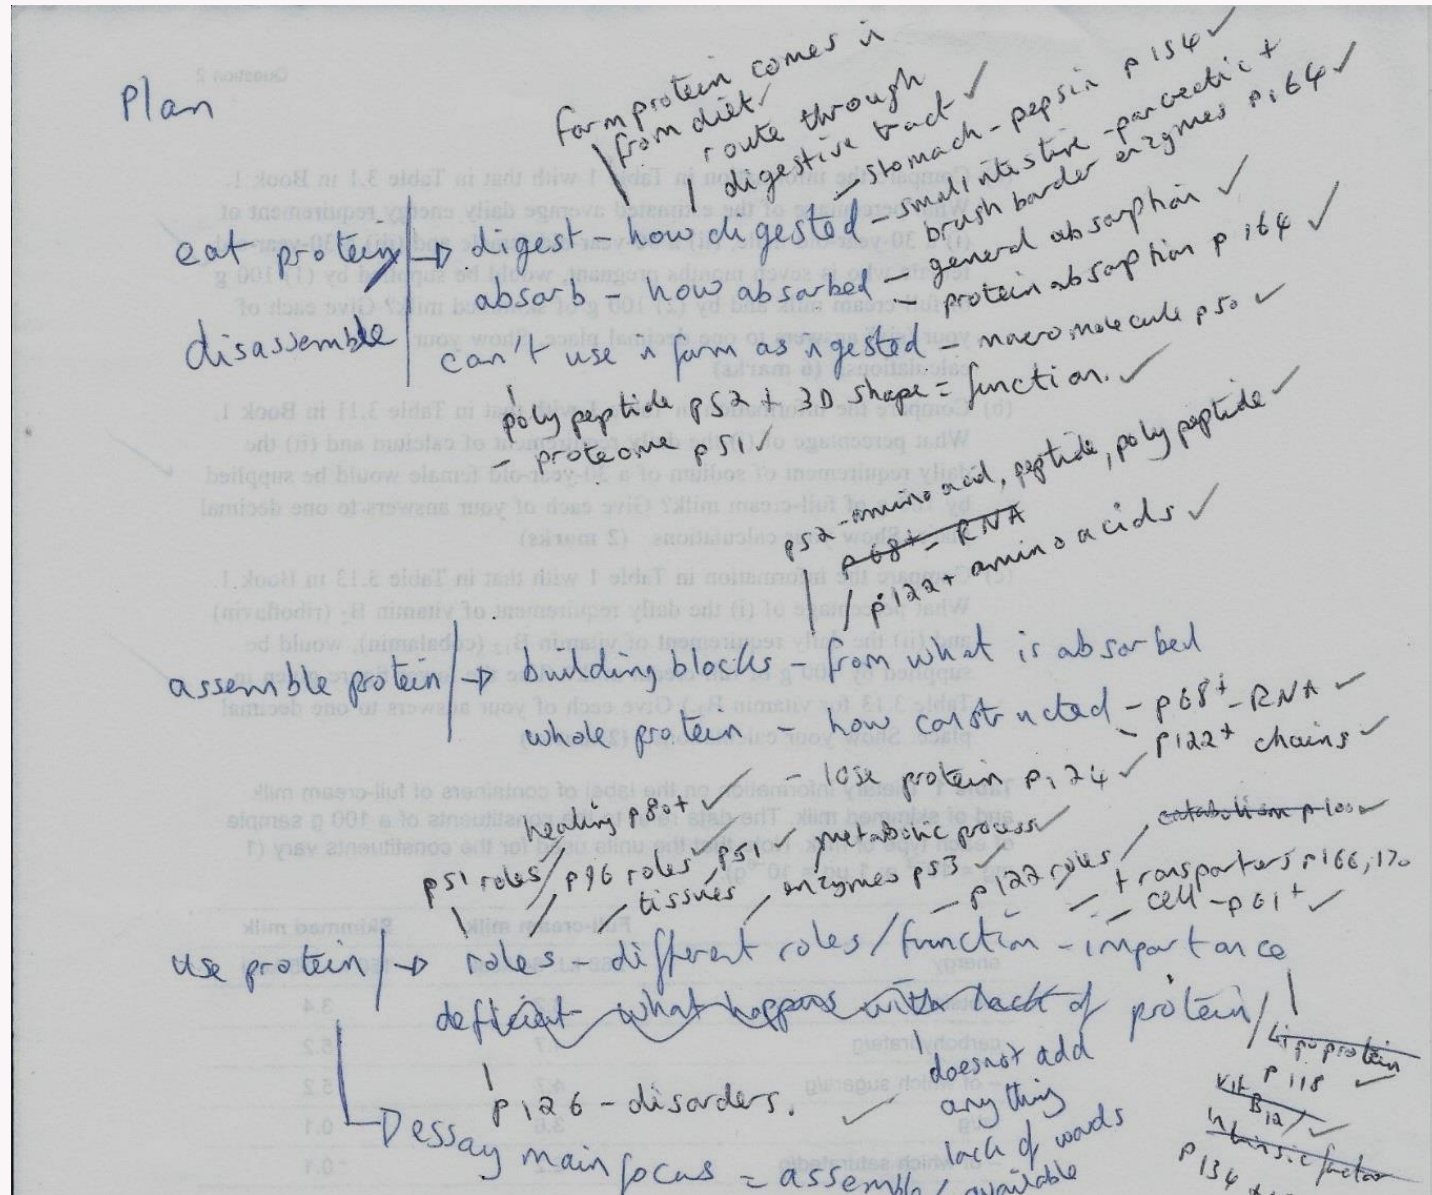 Plan
form protein comes in
from diet ✓
route through
digestive tract ✓
- stomach - pepsin p154 ✓
- small intestine - pancreatic +
brush border enzymes p164 ✓
eat protein → digest - how digested
- general absorption ✓
absorb - how absorbed - protein absorption p164 ✓
disassemble
can't use in form as ingested - macromolecule p50 ✓
polypeptide p52 + 3D shape = function. ✓
- proteome p51 ✓
p52 - amino acid, peptide, polypeptide ✓
p68+ - RNA
p122+ amino acids ✓
assemble protein → building blocks - from what is absorbed
whole protein - how constructed - p68+ - RNA ✓
- p122+ chains ✓
- lose protein p124 ✓
healing p80+ ✓
p51 roles p96 roles ✓ p51 ✓ metabolic process ✓
catabolism p100 ✓
tissues enzymes p53 ✓ - p122 roles
- transporters p166, 170
- cell - p61+ ✓
use protein → roles - different roles/function - importance
deficient - what happens with lack of protein
Lipoprotein
p118 ✓
doesnot add
anything
lack of words
available
Vit B12 ✓
intrinsic factor
p134
p126 - disorders. ✓
Dessay main focus = assemble